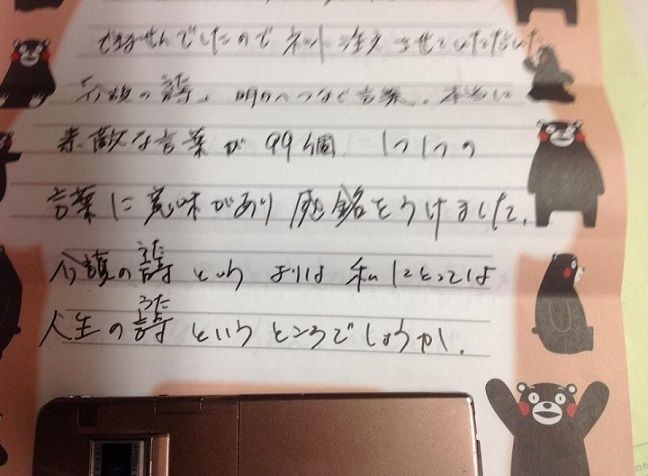 できませんでしたので ネット注文させていただいた
うた
「介護の詩」明日へつなぐ言葉、本当に
素敵な言葉が 99個 1つ1つの
言葉に意味があり 感銘をうけました。
うた
介護の詩という よりは 私にとっては
うた
人生の詩というところでしょうか。